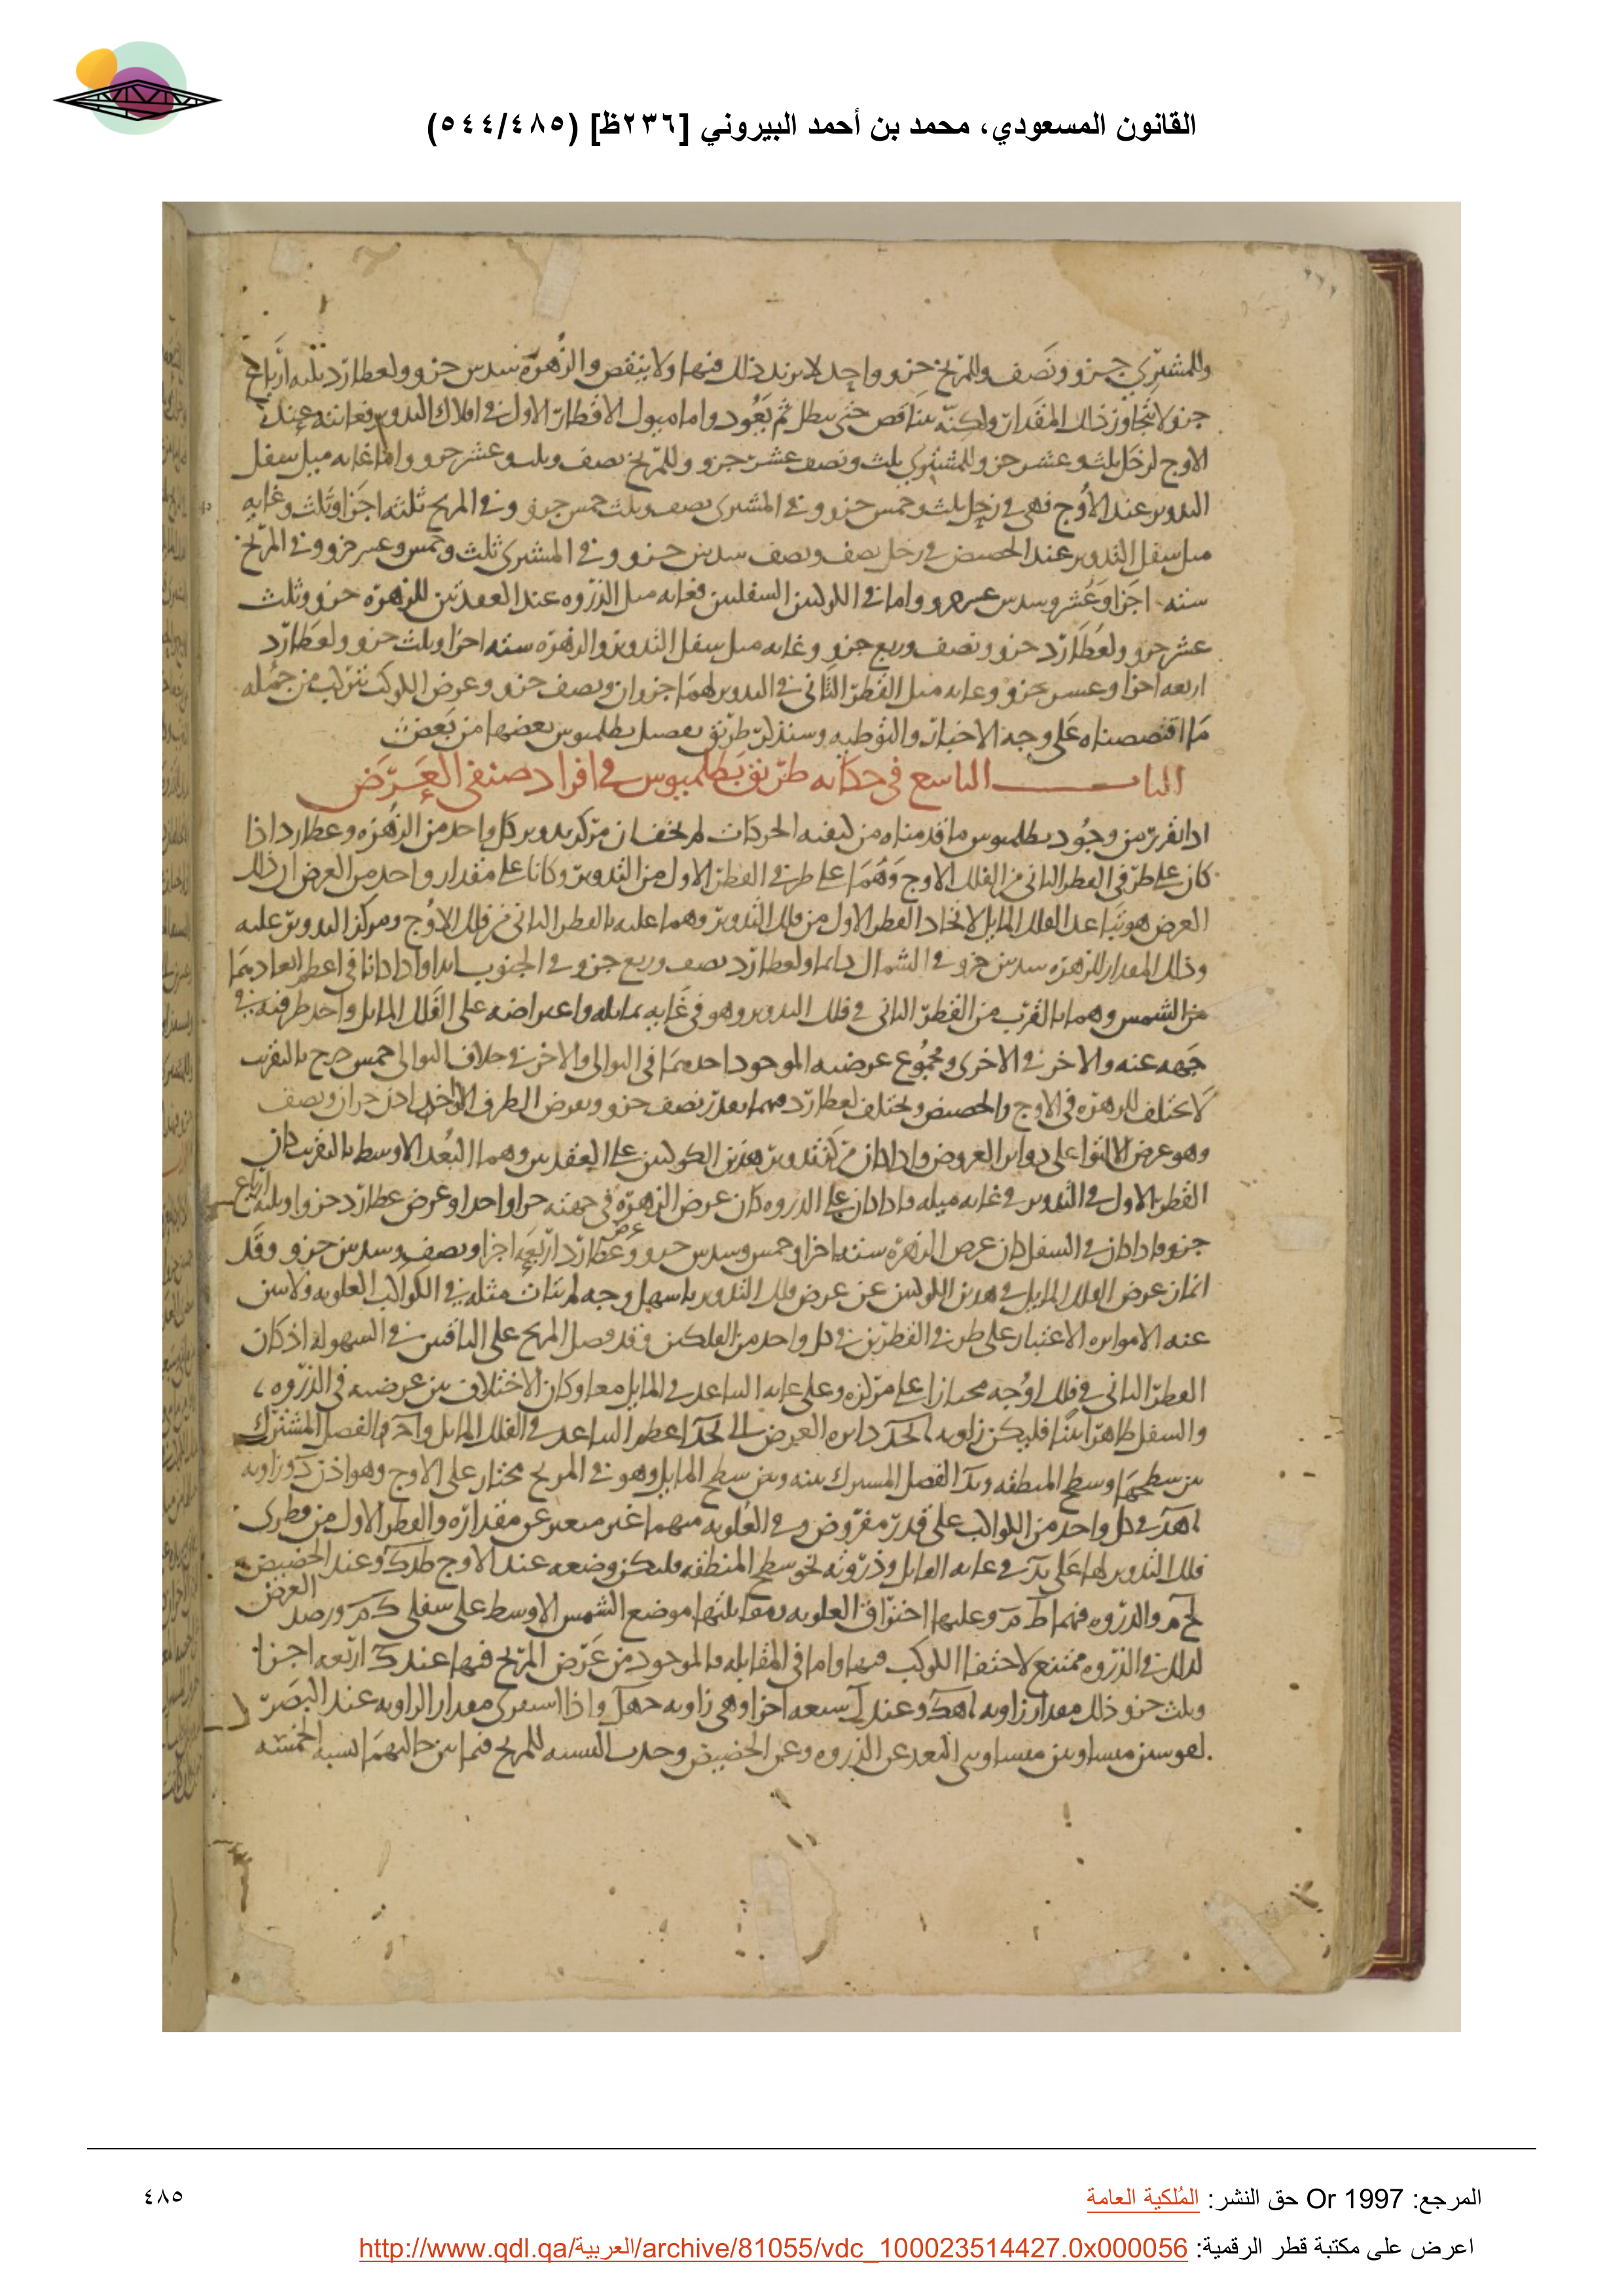 القانون المسعودي، محمد بن أحمد البيروني [٢٣٦ظ] (٥٤٤/٤٨٥)
وللمشتري جزو ونصف وللمريخ جزو واحد لا يزيد ذلك فيها ولا ينقص والزهرة سدس جزو ولعطارد ثلثه ارباع
جزو لا يتجاوز ذلك المقدار ولكنه يتناقص حتى يبطل ثم يعود واما ميول الاقطار الاول في افلاك التدوير فغايته عند
الاوج لزحل ثلث وعشر جزو وللمشتري ثلث ونصف عشر جزو وللمريخ نصف وثلث وعشر جزو واما غايه ميل سفل
التدوير عند الاوج فهى في زحل ثلث وخمس جزو وفي المشتري نصف وثلث خمس جزو وفي المريخ ثلثه اجزا وثلث وغايه
ميل سفل التدوير عند الحضيض في زحل نصف ونصف سدس جزو وفي المشتري ثلث وخمس وعشر جزو وفي المريخ
سته اجزا وعشر وسدس عشر جزو واما في الكوكبين السفليين فغايه ميل الذروه عند العقدتين للزهرة جزو وثلث
عشر جزو ولعطارد جزو ونصف وربع جزو وغايه ميل سفل التدوير والزهرة سته اجزا وثلث جزو ولعطارد
اربعه اجزا وعشر جزو وغايه ميل القطر الثاني في التدوير لهما جزوان ونصف جزو وعرض الكوكب يتركب من جمله
ما اقتصصناه على وجه الاخبار والتوطيه وسنذكر طريق تفصيل بطلميوس بعضها من بعض
الباب التاسع في حكايه طريق بطلميوس في افراد صنفى العرض
اذا تقرر من وجود بطلميوس ما قدمناه من كيفيه الحركات لم يخف ان مركز تدوير كل واحد من الزهره وعطارد اذا
كان على طرفي القطر الثاني من الفلك الاوج وهما على طرفي القطر الاول من التدوير وكانا على مقدار واحد من العرض ان ذلك
العرض هو تباعد الفلك المايل لاتحاد القطر الاول من فلك التدوير وهما عليه بالقطر الثاني من فلك الاوج ومركز التدوير عليه
وذلك المقدار للزهره سدس جزو في الشمال دايما ولعطارد نصف وربع جزو في الجنوب ابدا واذا كانا في اعظم ابعادهما
من الشمس وهما بالقرب من القطر الثاني في فلك التدوير وهو في غايه تمايله واعتراضه على الفلك المايل واحد طرفيه في
جهه عنه والاخر في الاخرى ومجموع عرضيه الموجود احدهما في التوالى والاخر في خلاف التوالى خمس درج بالتقريب
لا يختلف للزهره في الاوج والحضيض ويختلف لعطارد فيهما بقدر نصف جزو وبعرض الطرف الواحد اذن جزان ونصف
وهو عرض الالتوا على دواير العروض واذا كان مركز تدوير هذين الكوكبين على العقدتين وهما البعد الاوسط بالتقريب كان
القطر الاول في التدوير في غايه ميله فاذا كان على الذروه كان عرض الزهرة في جهته جزا واحدا وعرض عطارد جزوا وثلثه ارباع
جزو فاذا كان في السفل كان عرض الزهره سته اجزا وخمس وسدس جزو وعرض عطارد اربعه اجزا ونصف وسدس جزو وقد
انماز عرض الفلك المايل في هذين الكوكبين عن عرض فلك التدوير باسهل وجه لم يتات مثله في الكواكب العلويه
عنه الا موازه الاعتبار على طرفي القطرين في كل واحد من الفلكين وقد فضل المريخ على الباقيين في السهولة اذ كان
القطر الثاني في فلك اوجه مجتازا على مركزه وعلى غايه التباعد في المايل معا وكان الاختلاف بين عرضيه في الذروه
والسفل ظاهرا بينا فليكن زاويه دايره العرض اعظم التباعد في الفلك المايل الفصل المشترك
بين سطحها وسطح المنطقه الفصل المشترك بينه وبين سطح المايل وهو في المريخ مجتاز على الاوج وهو اذن وزاويه
اهد في كل واحد من الكواكب على قدر مفروض وفي العلويه منهما غير متغير عن مقداره والقطر الاول من قطرى
فلك التدوير لها على بد في غايه المايل وذروته نحو سطح المنطقه فليكن وضعه عند الاوج طدك وعند الحضيض
لحم والذروه فيهما ط م وعليها احتراق العلويه ومقابلتها موضع الشمس الاوسط على سفلى ورصد العرض
لذلك في الذروه ممتنع لاختفا الكوكب فيها واما في المقابله فالموجود من عرض المريخ فيها عند ك اربعه اجزا
وثلث جزو وذلك مقدار زاويه اهك وعند ل سبعه اجزا وهى زاويه جهل واذا استقرى مقدار الزاويه عند البصر
لقوسين متساويتين متساويتي البعد عن الذروه وعن الحضيض وجدت النسبه للمريخ فيما بين حاليهما لنسبه الخمسه
المرجع: Or 1997 حق النشر: المُلكية العامة
٤٨٥
اعرض على مكتبة قطر الرقمية: http://www.qdl.qa/العربية/archive/81055/vdc_100023514427.0x000056